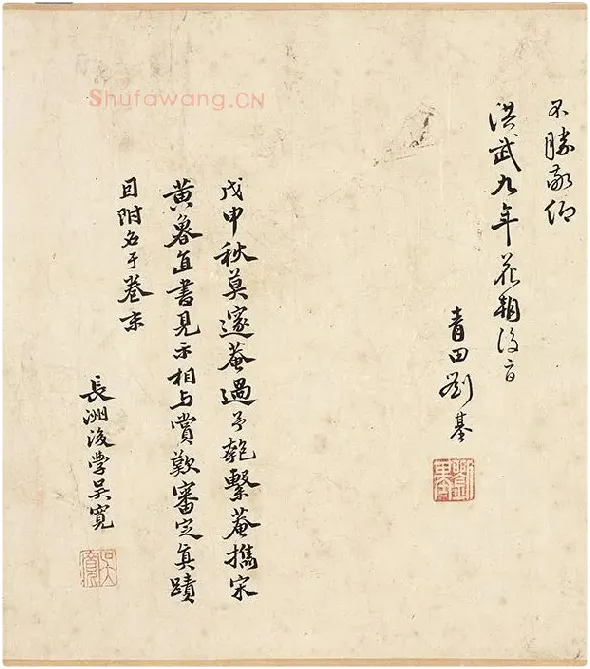 不勝敬仰
洪武九年花朝後一日
青田劉基
劉基
戊申秋莫邃菴過予匏繫菴攜宋
黃魯直書見示相与賞歎審定真蹟
因附名于卷末
長洲後学吳寬
吳寬
Shufawang.CN